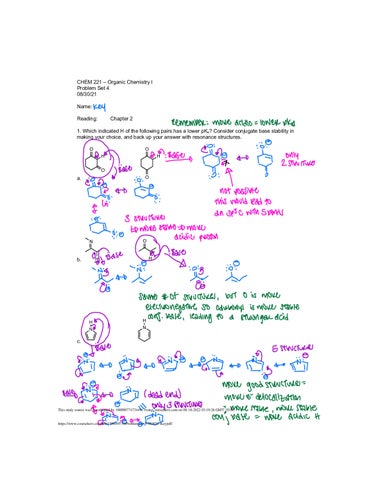 CHEM 221 – Organic Chemistry I
Problem Set 4
08/30/21
Name: Key
Reading: Chapter 2
remember: more acidic = lower pKa
1. Which indicated H of the following pairs has a lower pKa? Consider conjugate base stability in
making your choice, and back up your answer with resonance structures.
Base
Base
only
2 structures
a.
not possible
this would lead to
an sp²C with 5 bonds
3 structures
to more stable → more
acidic proton
Base
b.
same # of structures, but O is more
electronegative so is more stable
conj. base, leading to a stronger acid
c.
Base
5 structures
Base
(dead end)
only 3 structures
more good structures =
more e⁻ delocalization
= more stable, more stable
conj base = more acidic H
This study source was